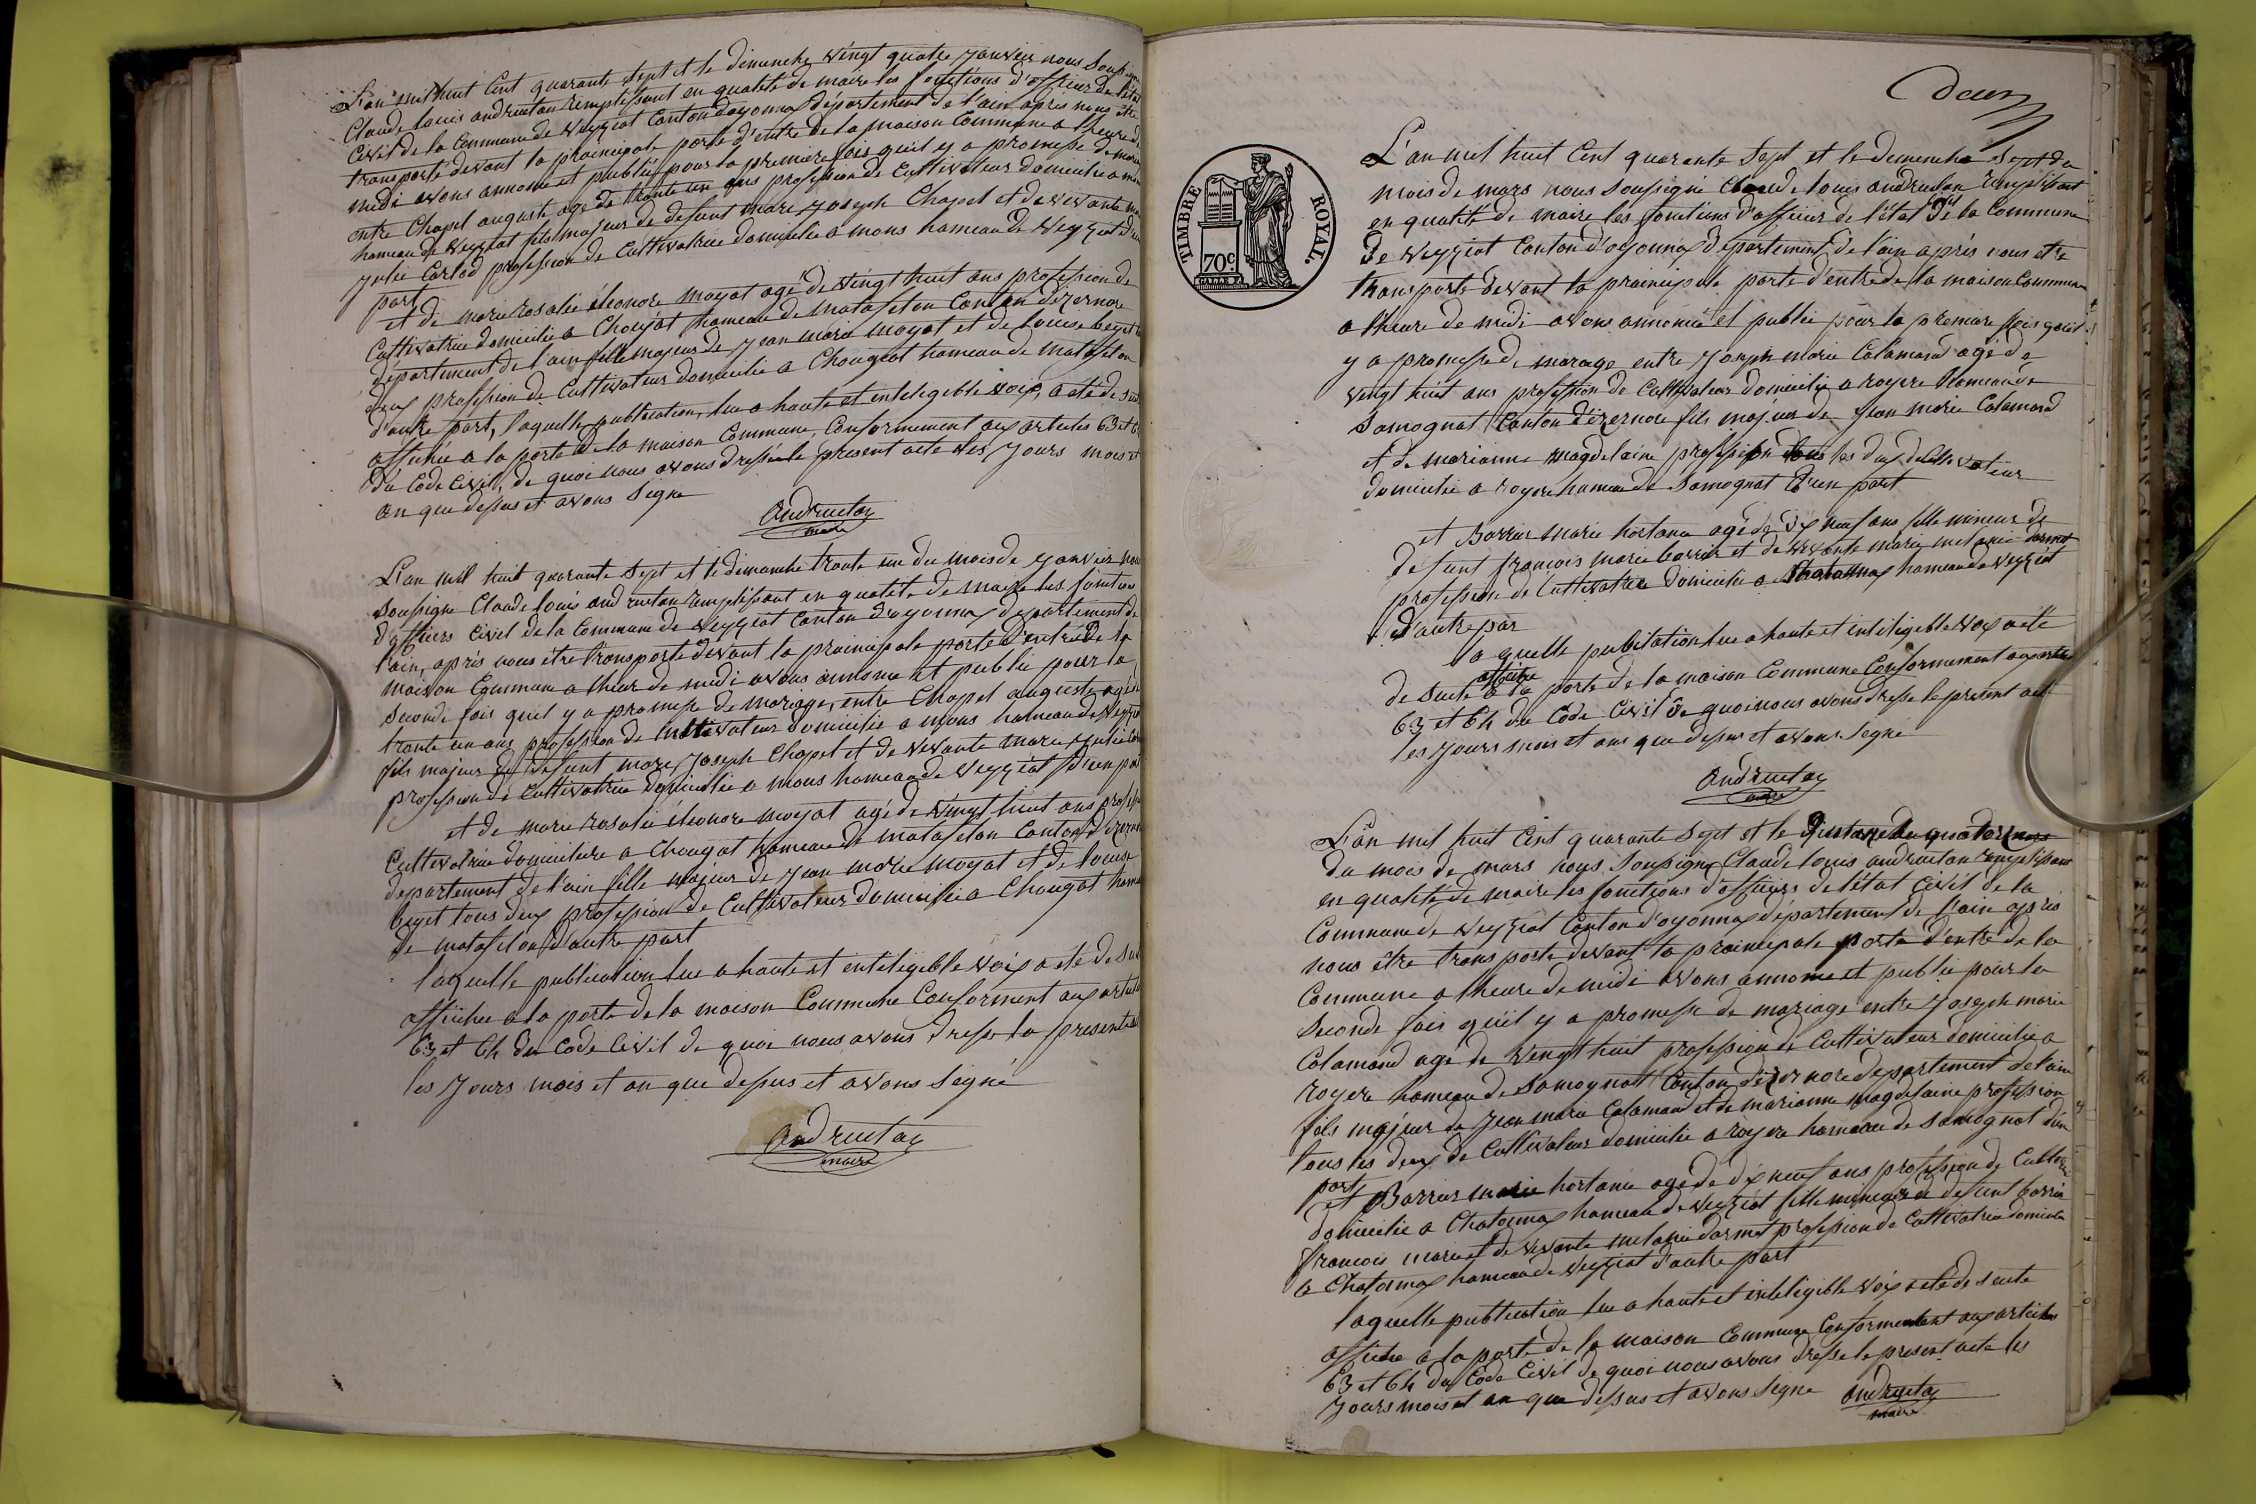 L'an mil huit Cent quarante sept et le dimanche vingt quatre janvier nous Soussigné
Claude louis andruetan remplissant en qualité de maire les fonctions d'officier de l'état
Civil de la Commune de veyziat Canton d'oyonnax département de l'ain apres nous être
transporté devant la prainicipale porte d'entré de la maison Commune a l'heure de
midi avons annoncé et publié pour la premiere fois quil y a promesse de mariage
entre Chapel auguste agé de trante un ans profession de Cultivateur domicilié a mons
hameau de veyziat fils majeur de defunt marc Joseph Chapel et de vivante marie
julie Carlod profession de Cultivatrice domicilié a mons hameau de veyziat d'une
part
et de marie Rosalie éleonore moyat agé de vingt huit ans profession de
Cultivatrice domicilié a Chougat hameau de matafelon Canton d'izernore
département de l'ain fille majeur de jean marie moyat et de louise beget tous
deux profession de Cultivateur domicilié a Chougeat hameau de matafelon
d'autre part, laquelle publication, lue a haute et inteligible voix, a eté de suite
affichée a la porte de la maison Commune, Conformement aux articles 63 et 64
du Code Civil, de quoi nous avons dressé le present acte les jours mois et
an que dessus et avons Signe
Andruetan
maire
L'an mil huit quarante Sept et le dimanche trante un du mois de janvier nous
soussigne Claude louis andruetan remplissant en qualité de maire les fonctions
d'officiers Civil de la Commune de veyziat Canton d'oyonnax departement de
l'ain, après nous être transporté devant la prainicipale porte d'entré de la
maison Commune a l'heur de midi avons annoncé et publié pour la
Seconde fois quil y a promesse de mariage, entre Chapel auguste agé de
trante un ans profession de Cultivateur domicilié a mons hameau de veyziat
fils majeur de defunt marc Joseph Chapel et de vivante marie julie Carlod
profession de Cultivatrice domicilié a mons hameau de veyziat d'une part
et de marie Rosalie éleonore moyat agé de vingt huit ans profession
Cultivatrice domicilière a Chougat hameau de matafelon Canton d'izernore
departement de l'ain fille majeur de jean marie moyat et de louise
beget tous deux profession de Cultivateur domicilié a Chougat hameau
de matafelon d'autre part
laquelle publication lue a haute et inteligible voix a eté de suite
affichée a la porte de la maison Commune Conforment aux articles
63 et 64 du Code Civil de quoi nous avons dresse la presente
les jours mois et an que dessus et avons Signé
Andruetan
maire
Deux
TIMBRE ROYAL.
70c.
L'an mil huit Cent quarante Sept et le dimenche Sept du
mois de mars nous soussigné Claude louis andruetan remplissant
en qualité de maire les fonctions d'officier de l'état Civil de la Commune
de veyziat Canton d'oyonnax département de l'ain après nous etre
transporté devant la prainicipale porte d'entré de la maison Commune
a l'heure de midi avons annoncé et publié pour la premiere fois quil
y a promesse de mariage entre Joseph marie Calamand agé de
vingt huit ans profession de Cultivateur domicilié a royere hameau de
Samognat Canton d'izernore fils majeur de jean marie Calamand
et de marianne magdelaine profession tous les deux de Cultivateur
domicilié a royere hameau de Samognat d'une part
et Barrier Marie hortance agé de dix neuf ans fille mineur de
defunt françois marie barrier et de vivante marie melanie darmet
profession de Cultivatrice domicilié a Chatonnax hameau de veyziat
d'autre par
laquelle publication lue a haute et inteligible voix a eté
de suite affichée a la porte de la maison Commune Conformement aux articles
63 et 64 du Code Civil de quoi nous avons dresse le present acte
les jours mois et ans que dessus et avons Signé
Andruetan
maire
L'an mil huit Cent quarante Sept et le
du mois de mars nous Soussigne Claude louis andruetan remplissant
en qualité de maire les fonctions d'officiers de l'état Civil de la
Commune de veyziat Canton d'oyonnax département de l'ain après
nous être transporté devant la prainicipale porte d'entré de la
Commune a l'heure de midi avons annoncé et publié pour la
seconde fois qu'il y a promesse de mariage entre Joseph marie
Calamand agé de vingt huit profession de Cultivateur domicilié a
royere hameau de Samognat Canton d'izernore département de l'ain
fils majeur de jean marie Calamand et de marianne magdelaine profession
tous les deux de Cultivateur domicilié a royere hameau de Samognat d'une
part
et Barrier marie hortance agé de dix neuf ans profession de Cultivatrice
domicilié a Chatonnax hameau de veyziat fille mineure de defunt barrier
francois marie et de vivante melanie darmet profession de Cultivatrice domicilié
a Chatonnax hameau de veyziat d'autre part
laquelle publication lue a haute et inteligible voix a eté de suite
affichée a la porte de la maison Commune Conformement aux articles
63 et 64 du Code Civil de quoi nous avons dresse le present acte les
jours mois et an que dessus et avons Signe Andruetan
maire